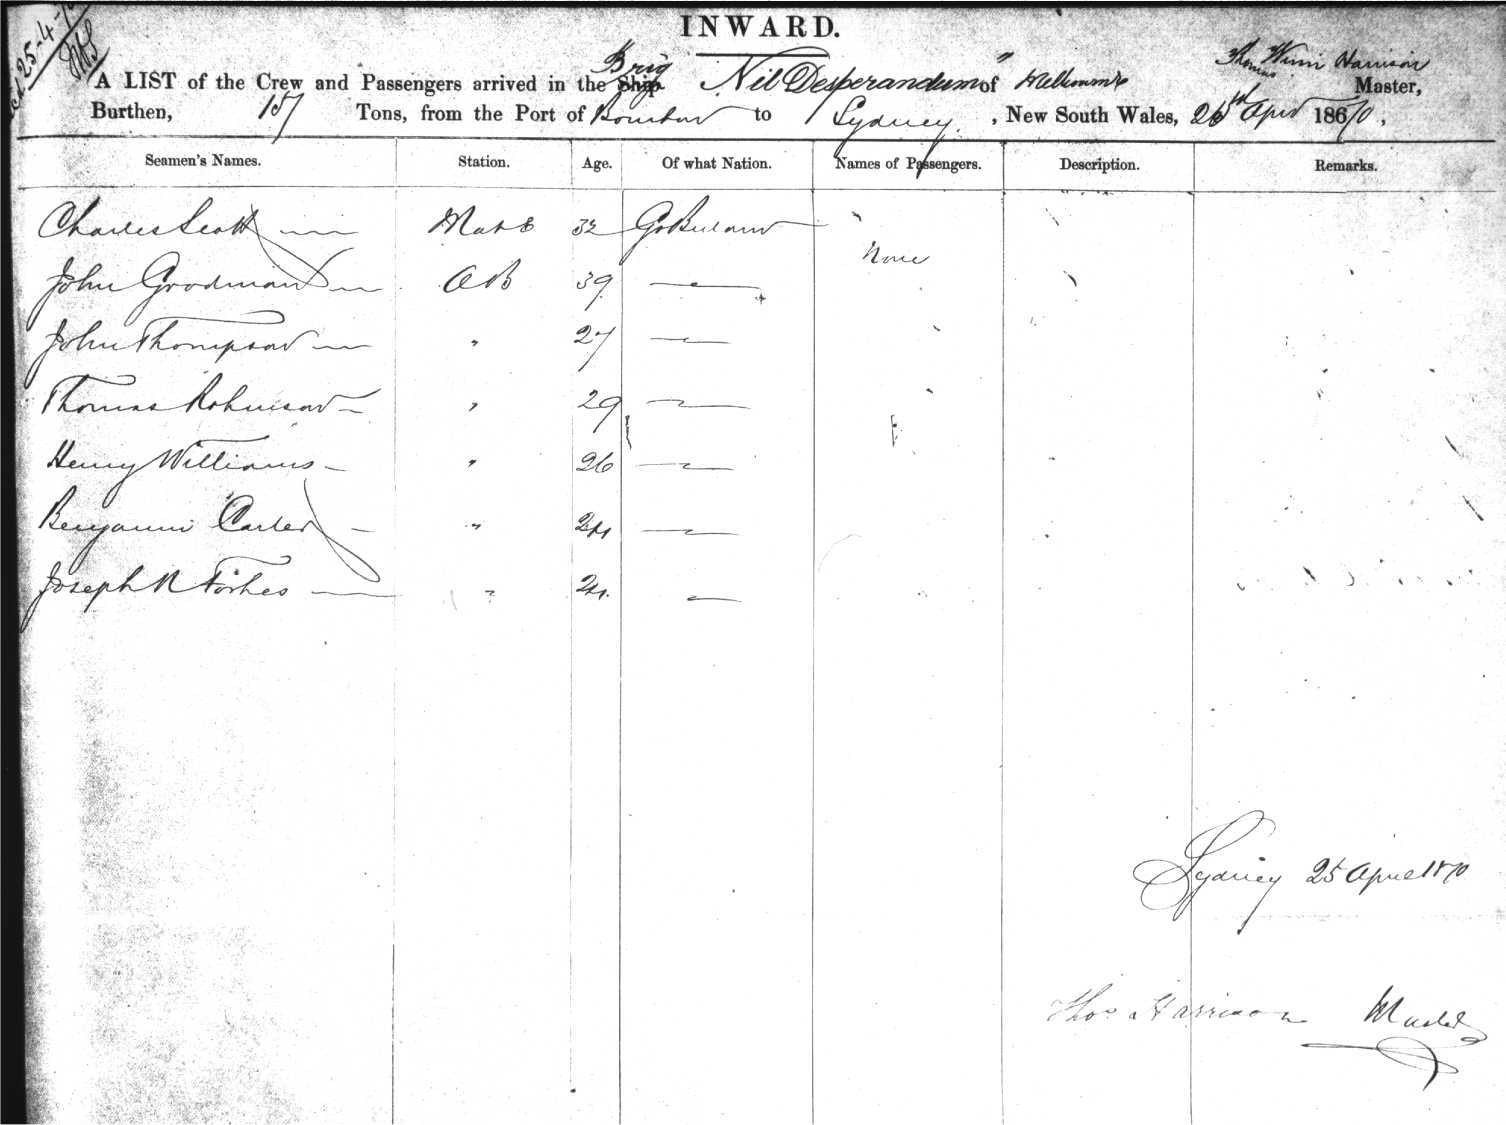 INWARD.
25-4-
A LIST of the Crew and Passengers arrived in the Ship Brig "Nil Desperandum" of Melbourne Thomas Winn Harrison Master,
Burthen, 187 Tons, from the Port of Bourbon to Sydney, New South Wales, 25th April 1870,
Seamen's Names. Station. Age. Of what Nation. Names of Passengers. Description. Remarks.
Charles Scott Mate 32 Gt Britain
None
John Goodman AB 39 —
John Thompson " 27 —
Thomas Robinson " 29 —
Henry Williams " 26 —
Benjamin Carter " 24 —
Joseph R Forbes " 24 —
Sydney 25 April 1870
Thos Harrison Master